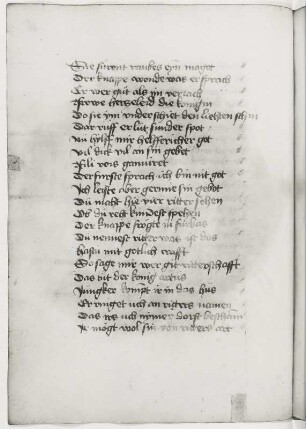 Sie fürent raubes eyn maget
Der knappe wonde was er sprach
Er wer gut als ym veriach
frowe herzeleid die konigin
Do sie ym vnderschiet den liehten schin
Dar vff er lut sunder spot
nu hilff mir helffericher got
vil dick viel an sin gebot
fili rois gamuret
Der fürste sprach ich bin nit got
Ich leiste aber gerne sin gebot
Du macht hye vier ritter sehen
Ob du recht kundest spehen
Der knappe fragt in fürbas
Du nennest ritter was ist das
hastu nit gotlich crafft
So sage mir wer git ritterschafft
Das dut der konig artus
Jungker kompt ir in das hus
Er bringet uch an ritters namen
Das irs uch nymer dorfft beschamen
Ir mögt wol sin von ritters art